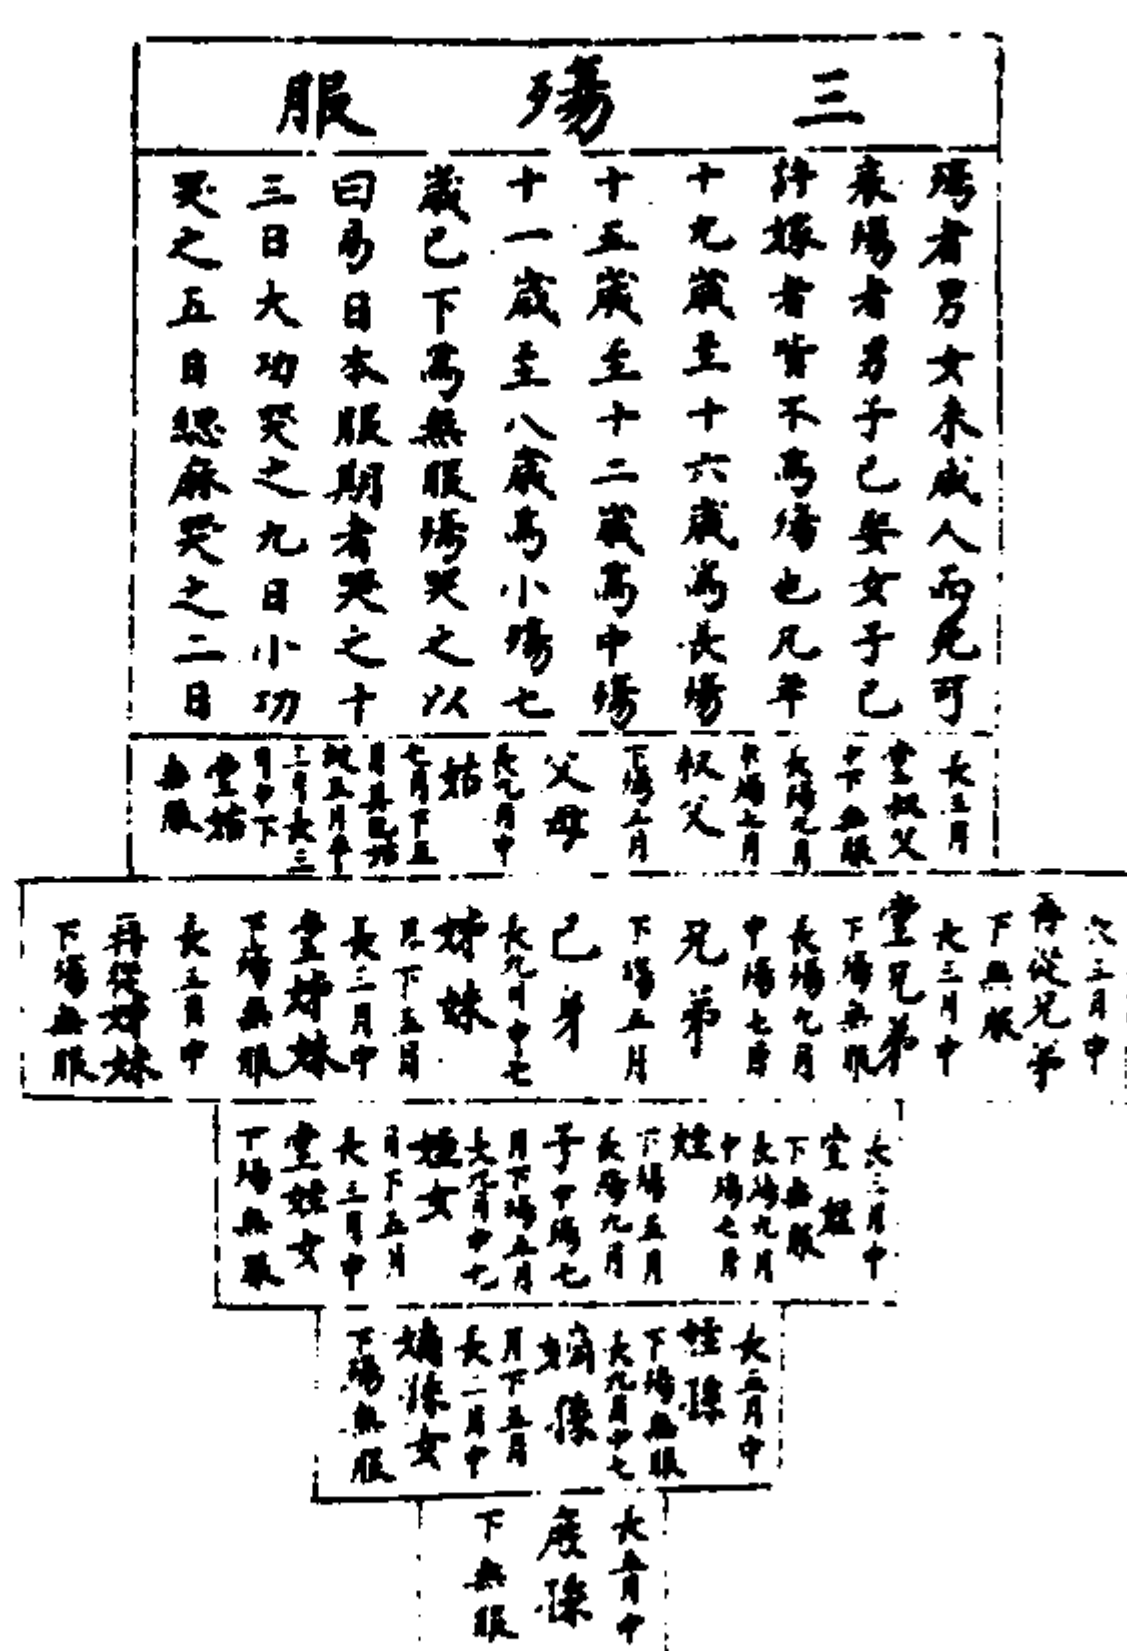 三殤服
殤者男女未成人而死可
哀殤者男子已娶女子已
許嫁者皆不為殤也凡年
十九歲至十六歲為長殤
十五歲至十二歲為中殤
十一歲至八歲為小殤七
歲已下為無服殤哭之以
日易日本服期者哭之十
三日大功哭之九日小功
哭之五日緦麻哭之二日
長三月
堂叔父
中下無服
長殤九月
中殤七月
叔父
下殤五月
父母
長九月中
姑
七月下五
月其已
五月中
三月長三
月中下
堂姑
無服
三月中
再從兄弟
下無服
長三月中
堂兄弟
下殤無服
長殤九月
中殤七月
兄弟
下殤五月
己身
長九月中七
姊妹
月下五月
長三月中
堂姊妹
下殤無服
長三月中
再從姊妹
下殤無服
長三月中
堂姪
下無服
長殤九月
中殤七月
姪
下殤五月
長殤九月
子中殤七
月下殤五月
長九月中七
姪女
月下五月
長三月中
堂姪女
下殤無服
長三月中
姪孫
下殤無服
長九月中七
嫡孫
月下五月
長二月中
嫡孫女
下殤無服
長五月中
庶孫
下無服